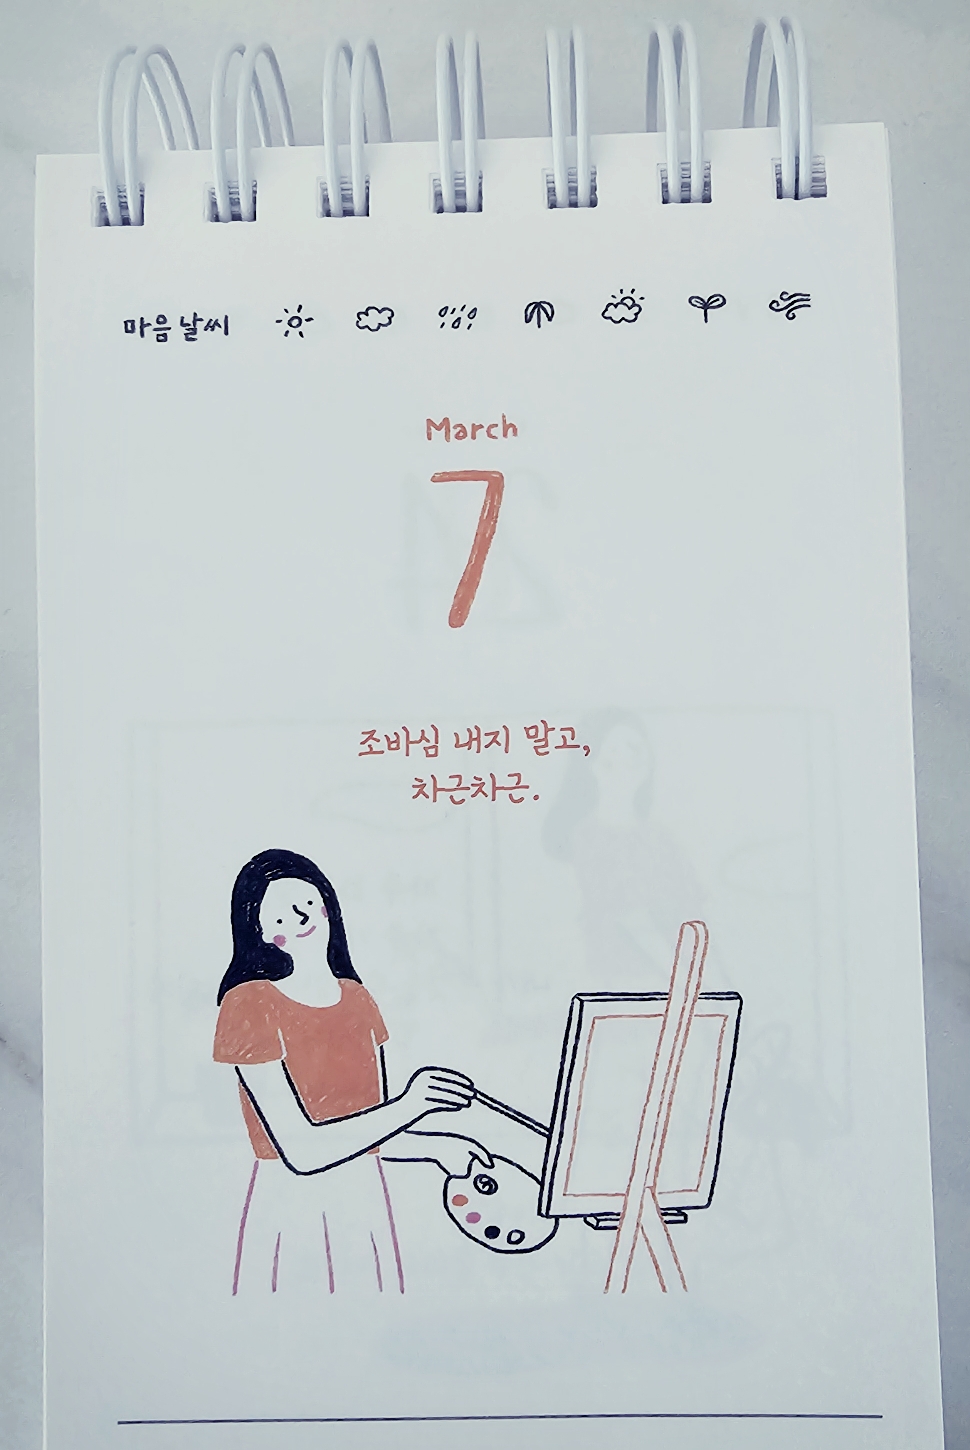 마음 날씨
March
7
조바심 내지 말고,
차근차근.